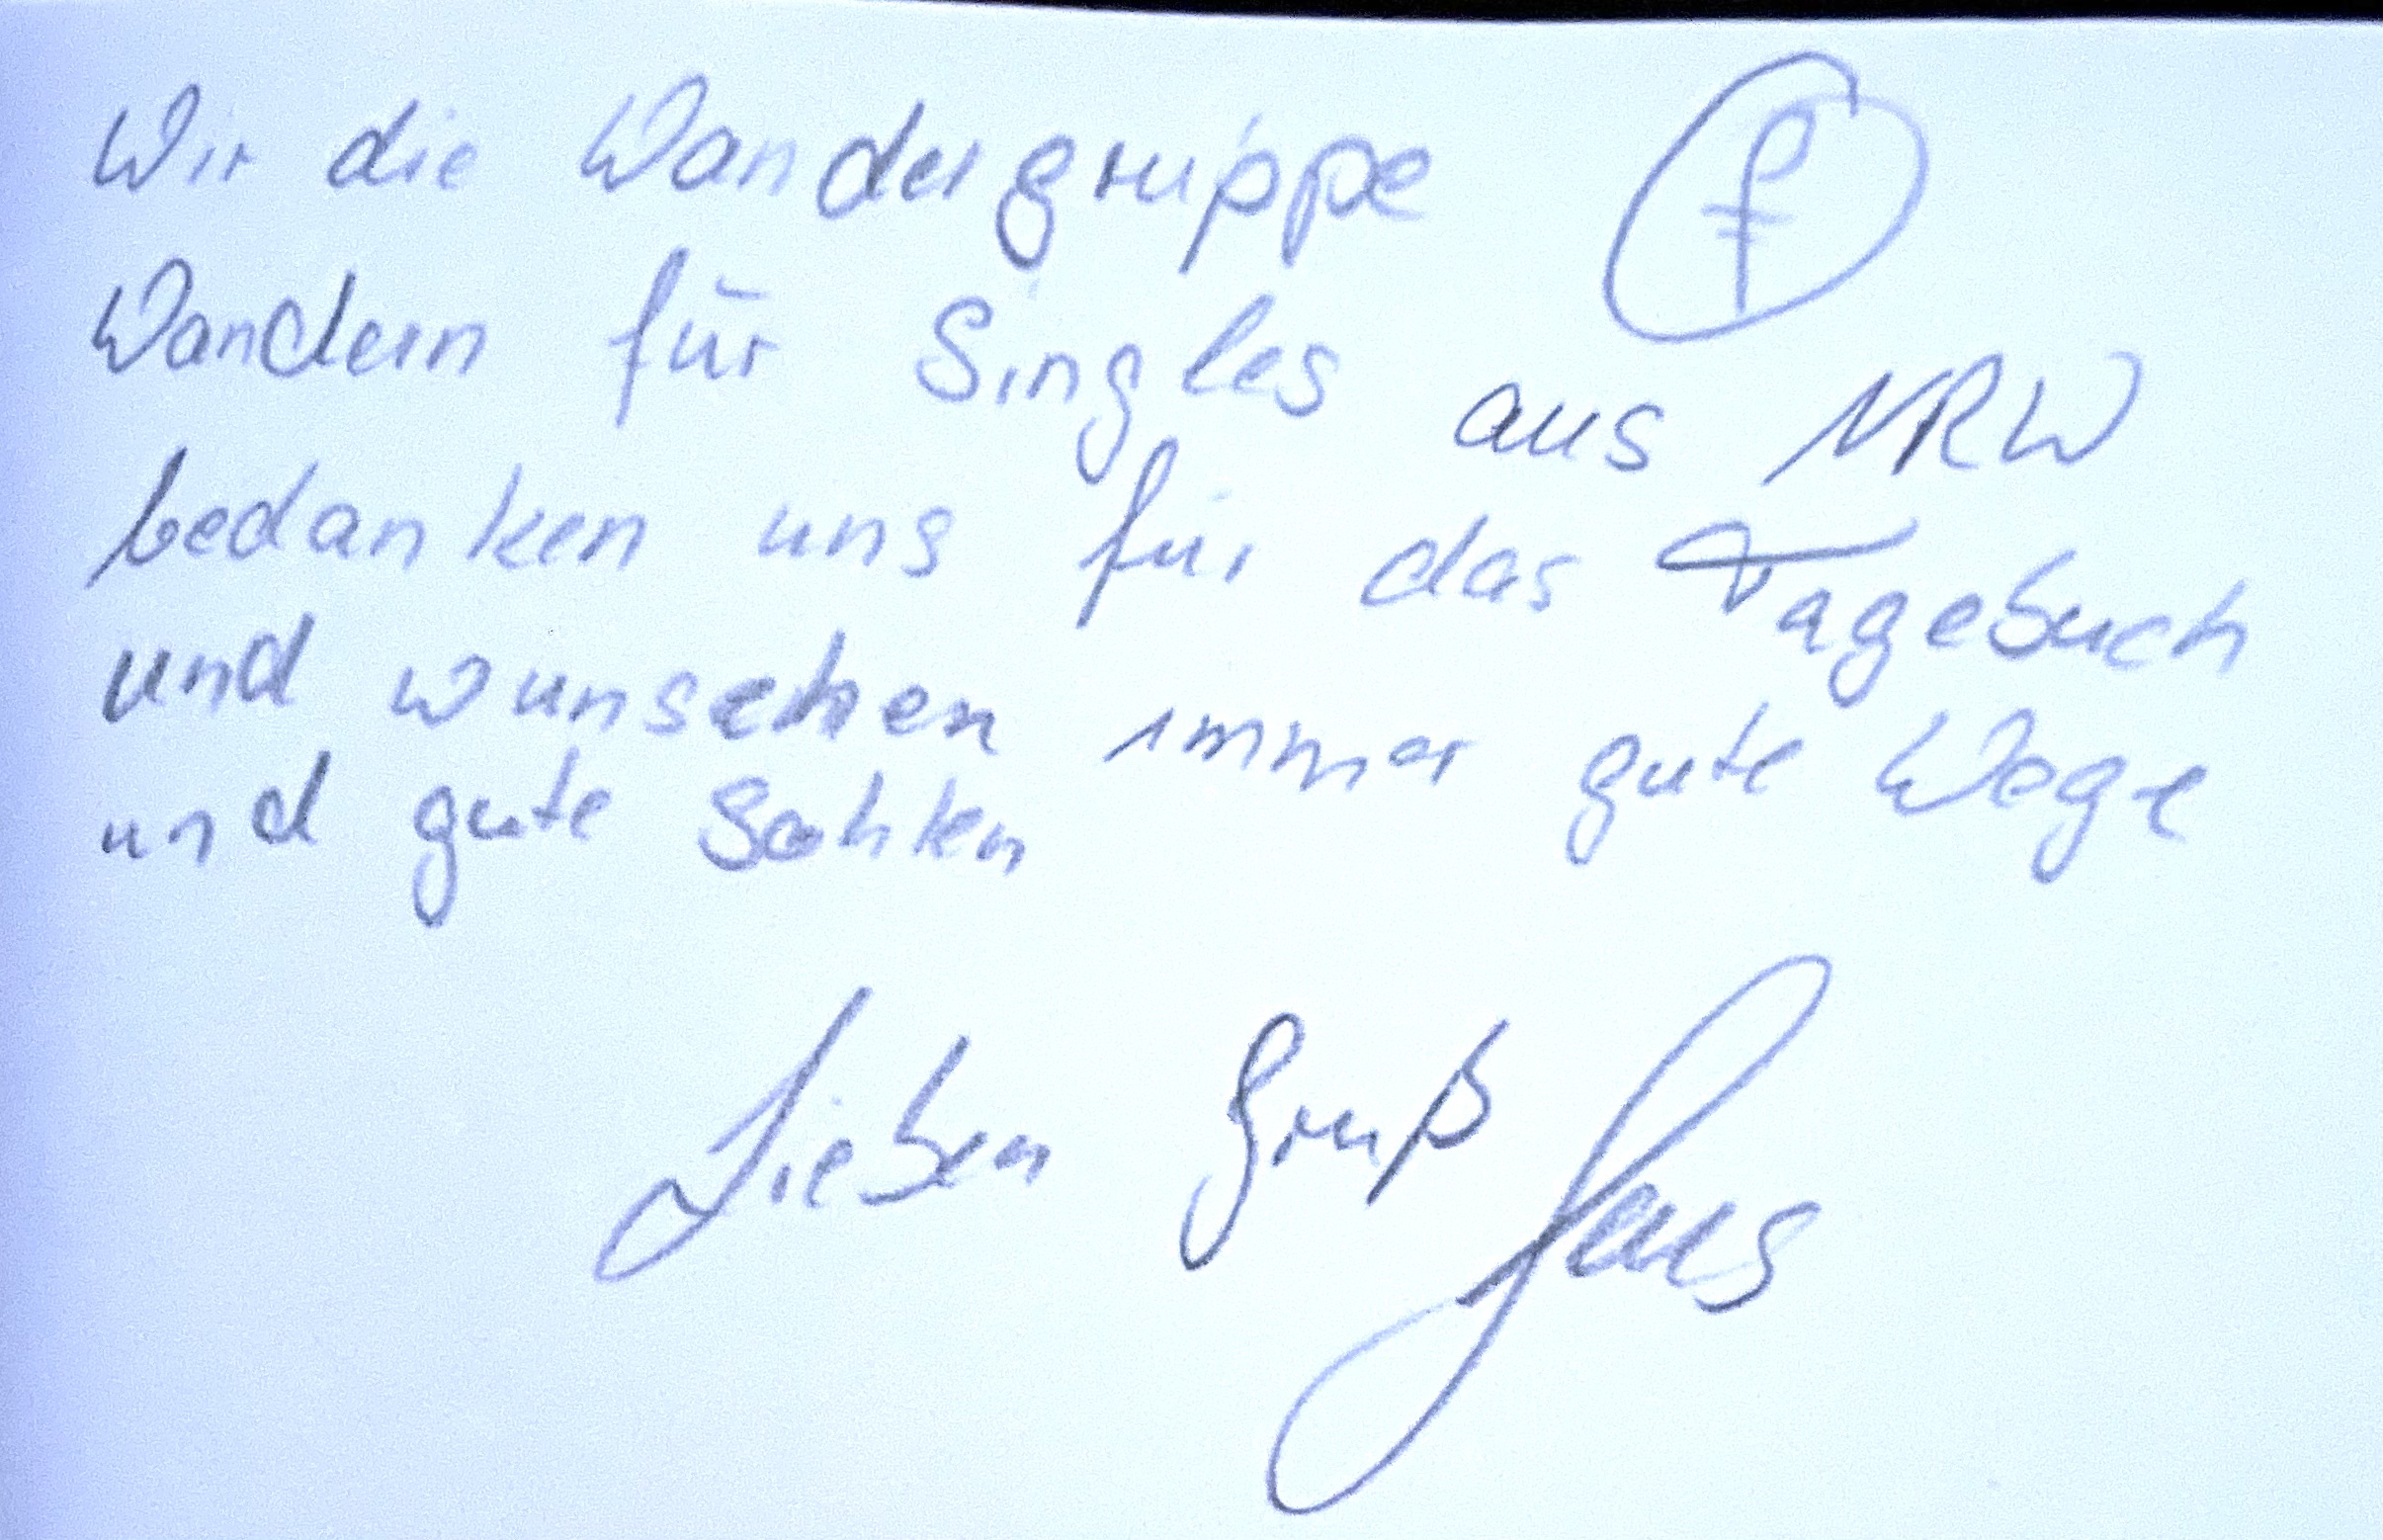 Wir die Wandergruppe
Wandern für Singles aus NRW
bedanken uns für das Tagebuch
und wünschen immer gute Wege
und gute Sohlen
Lieben Gruß